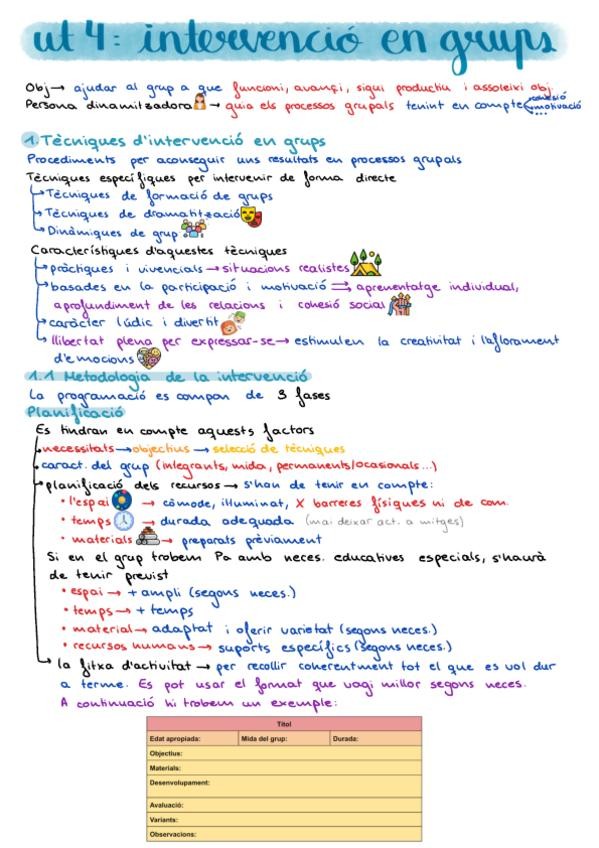 ut 4: intervenció en grups
Obj→ ajudar al grup a que funcioni, avançi, sigui productiu i assoleixi obj.
Persona dinamitzadora → guia els processos grupals tenint en compte cohesió
motivació
...
1. Tècniques d'intervenció en grups
Procediments per aconseguir uns resultats en processos grupals
Tècniques específiques per intervenir de forma directe
↳Tècniques de formació de grups
↳Tècniques de dramatització
↳Dinàmiques de grup
Característiques d'aquestes tècniques
↳pràctiques i vivencials → situacions realistes
↳basades en la participació i motivació ⇒ aprenentatge individual,
aprofundiment de les relacions i cohesió social
↳caràcter lúdic i divertit
↳llibertat plena per expressar-se → estimulen la creativitat i l'aflorament
d'emocions
1.1 Metodologia de la intervenció
La programació es compon de 3 fases
Planificació
Es tindran en compte aquests factors
necessitats → objectius → selecció de tècniques
caract. del grup (integrants, mida, permanents/ocasionals...)
planificació dels recursos → s'han de tenir en compte:
• l'espai → còmode, il·luminat, X barreres físiques ni de com.
• temps → durada adequada (mai deixar act. a mitges)
• materials → preparats prèviament
Si en el grup trobem Pa amb neces. educatives especials, s'haurà
de tenir previst
• espai → + ampli (segons neces.)
• temps → + temps
• material → adaptat i oferir varietat (segons neces.)
• recursos humans → suports específics (segons neces.)
↳ la fitxa d'activitat → per recollir coherentment tot el que es vol dur
a terme. Es pot usar el format que vagi millor segons neces.
A continuació hi trobem un exemple:
Títol
Edat apropiada: Mida del grup: Durada:
Objectius:
Materials:
Desenvolupament:
Avaluació:
Variants:
Observacions: